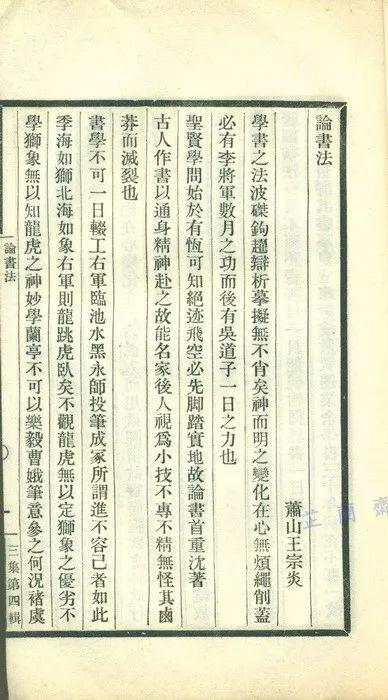 論書法
蕭山王宗炎
學書之法波磔鉤趯辯析摹擬無不肖矣神而明之變化在心無煩繩削蓋
必有李將軍數月之功而後有吳道子一日之力也
聖賢學問始於有恆可知絕迹飛空必先脚踏實地故論書首重沈著
古人作書以通身精神赴之故能名家後人視爲小技不專不精無怪其鹵
莽而滅裂也
書學不可一日輟工右軍臨池水黑永師投筆成冢所謂進不容己者如此
季海如獅北海如象右軍則龍跳虎臥矣不觀龍虎無以定獅象之優劣不
學獅象無以知龍虎之神妙學蘭亭不可以樂毅曹娥筆意參之何況褚虞
論書法
三集第四輯
芷蘭齋